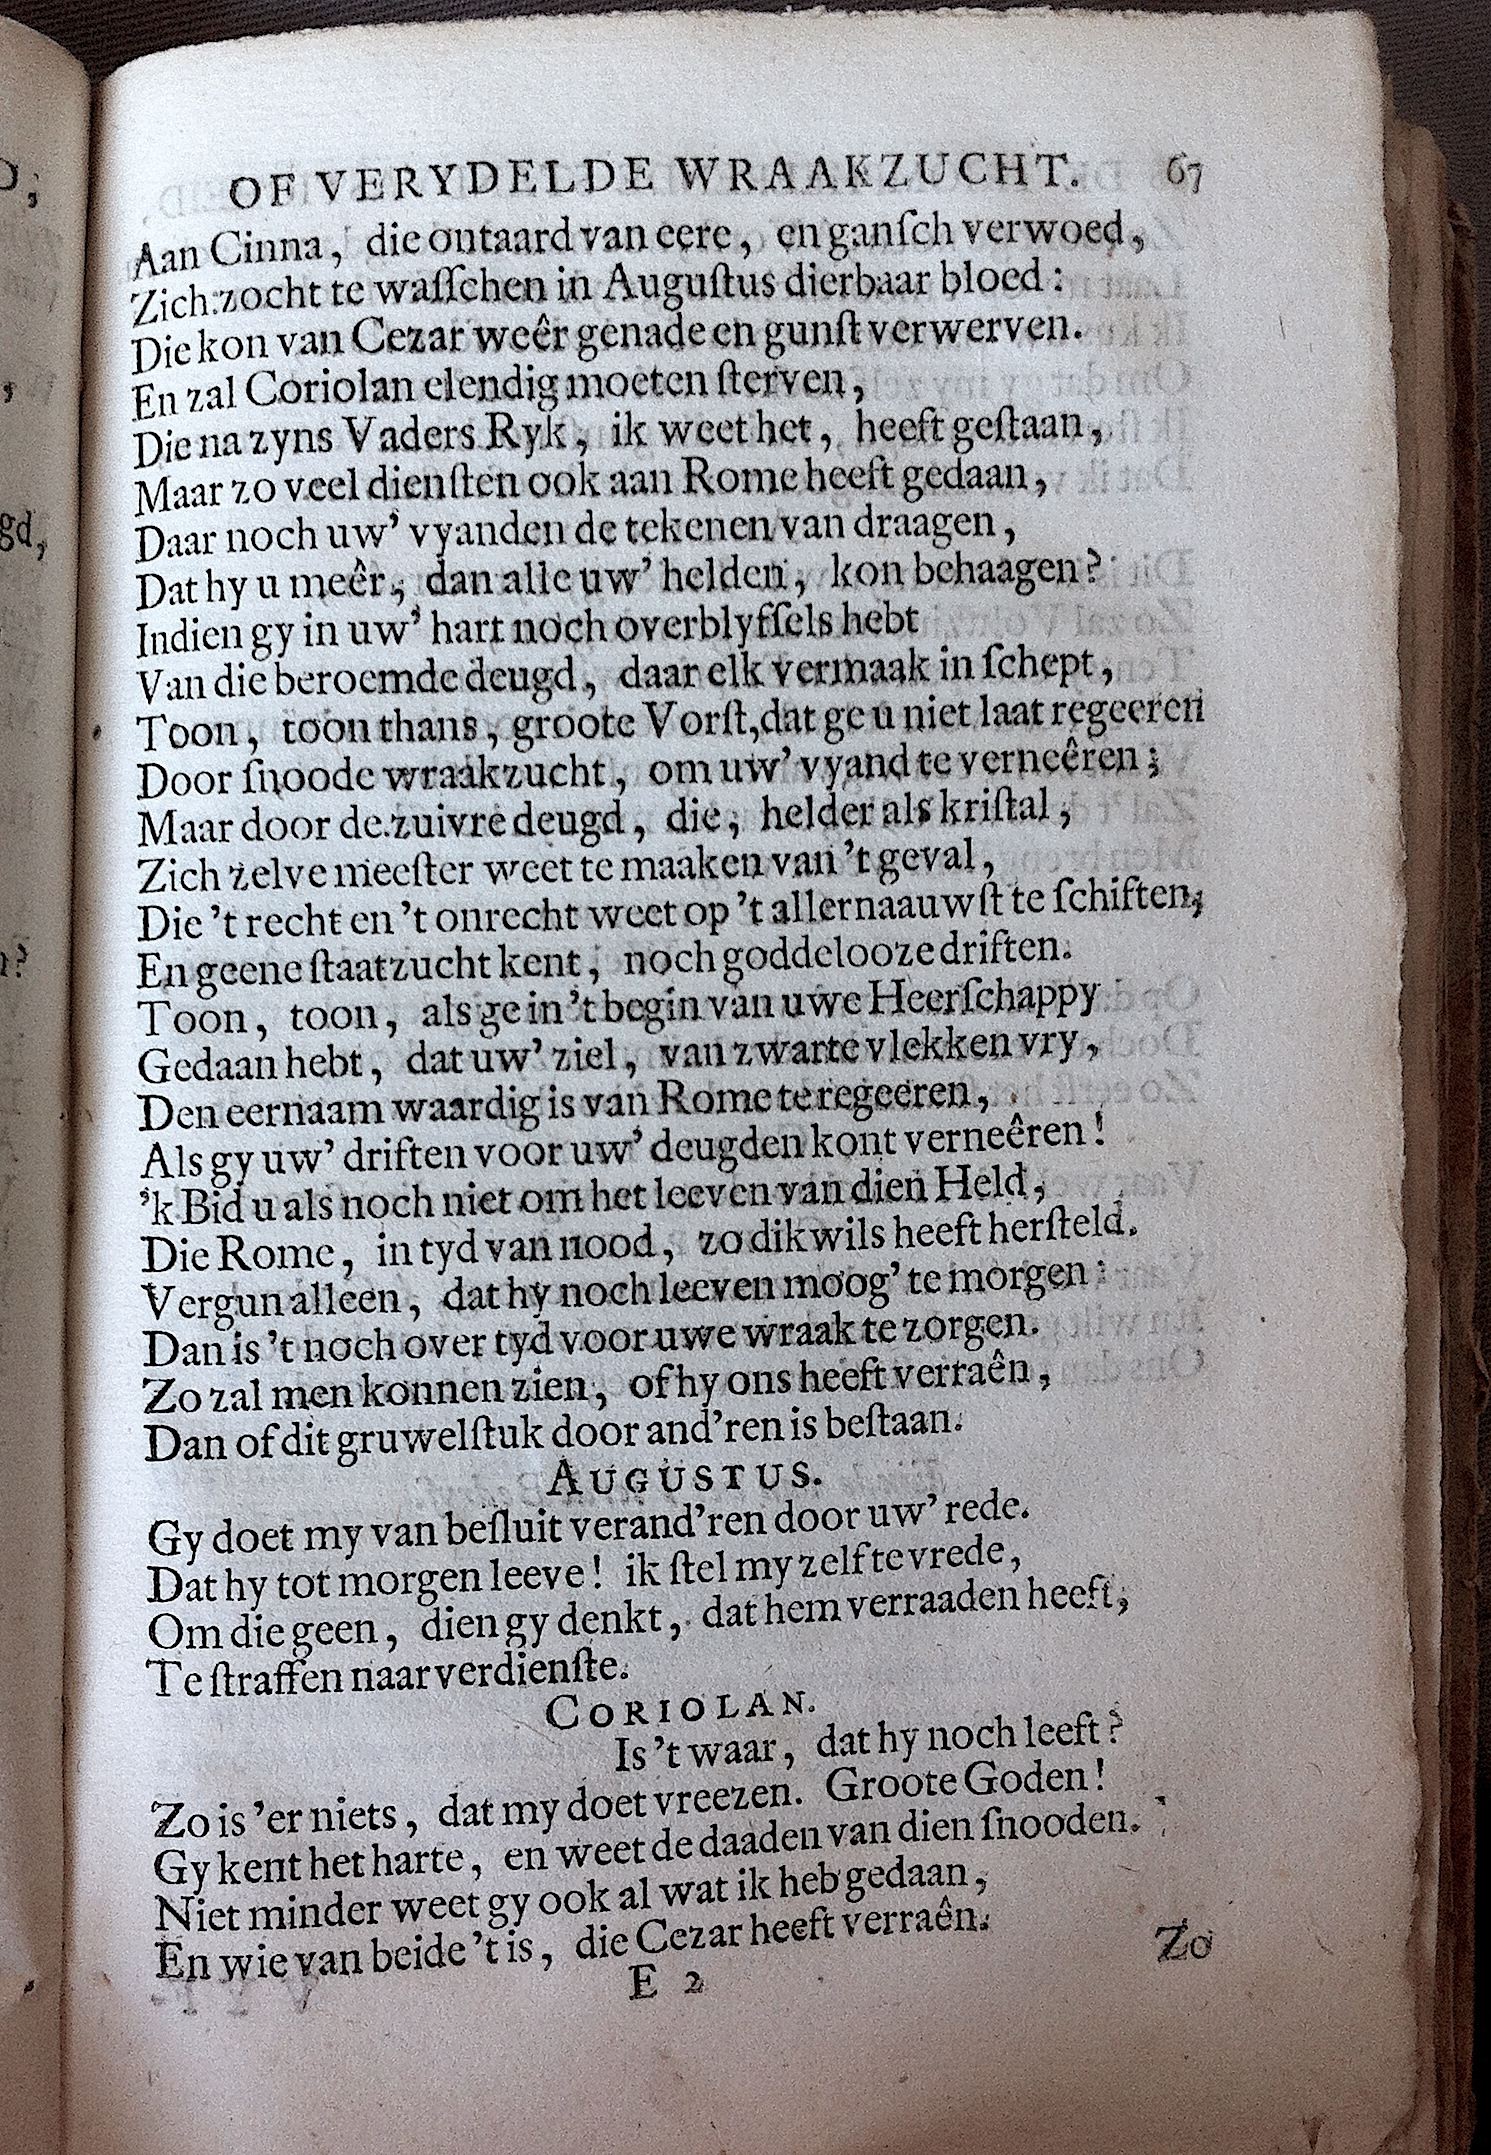 OF VERYDELDE WRAAKZUCHT. 67
Aan Cinna, die ontaard van eere, en ganſch verwoed,
Zich zocht te waſſchen in Auguſtus dierbaar bloed:
Die kon van Cezar weêr genade en gunſt verwerven.
En zal Coriolan elendig moeten ſterven,
Die na zyns Vaders Ryk, ik weet het, heeft geſtaan,
Maar zo veel dienſten ook aan Rome heeft gedaan,
Daar noch uw' vyanden de tekenen van draagen,
Dat hy u meêr, dan alle uw' helden, kon behaagen?
Indien gy in uw' hart noch overblyfſels hebt
Van die beroemde deugd, daar elk vermaak in ſchept,
Toon, toon thans, groote Vorſt, dat ge u niet laat regeeren
Door ſnoode wraakzucht, om uw' vyand te verneêren;
Maar door de zuivre deugd, die, helder als kriſtal,
Zich zelve meeſter weet te maaken van 't geval,
Die 't recht en 't onrecht weet op 't allernaauwſt te ſchiften,
En geene ſtaatzucht kent, noch goddelooze driften.
Toon, toon, als ge in 't begin van uwe Heerſchappy
Gedaan hebt, dat uw' ziel, van zwarte vlekken vry,
Den eernaam waardig is van Rome te regeeren,
Als gy uw' driften voor uw' deugden kont verneêren!
'k Bid u als noch niet om het leeven van dien Held,
Die Rome, in tyd van nood, zo dikwils heeft herſteld.
Vergun alleen, dat hy noch leeven moog' te morgen:
Dan is 't noch over tyd voor uwe wraak te zorgen.
Zo zal men konnen zien, of hy ons heeft verraên,
Dan of dit gruwelſtuk door and'ren is beſtaan.
AUGUSTUS.
Gy doet my van beſluit verand'ren door uw' rede.
Dat hy tot morgen leeve! ik ſtel my zelf te vrede,
Om die geen, dien gy denkt, dat hem verraaden heeft,
Te ſtraffen naar verdienſte.
CORIOLAN.
Is 't waar, dat hy noch leeft?
Zo is 'er niets, dat my doet vreezen. Groote Goden!
Gy kent het harte, en weet de daaden van dien ſnooden.
Niet minder weet gy ook al wat ik heb gedaan,
En wie van beide 't is, die Cezar heeft verraên.
E 2 Zo
gd,